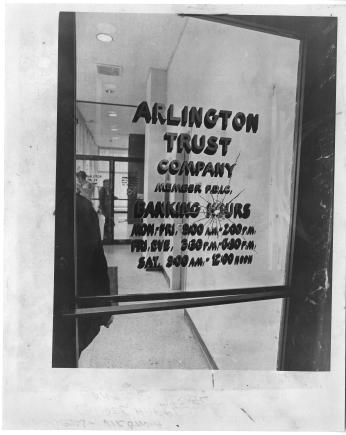 ARLINGTON
TRUST
COMPANY
MEMBER F.D.I.C.
BANKING HOURS
MON.-FRI. 9:00 A.M.-2:00 P.M.
FRI. EVE. 3:30 P.M.-6:30 P.M.
SAT. 9:00 A.M.-12:00 NOON